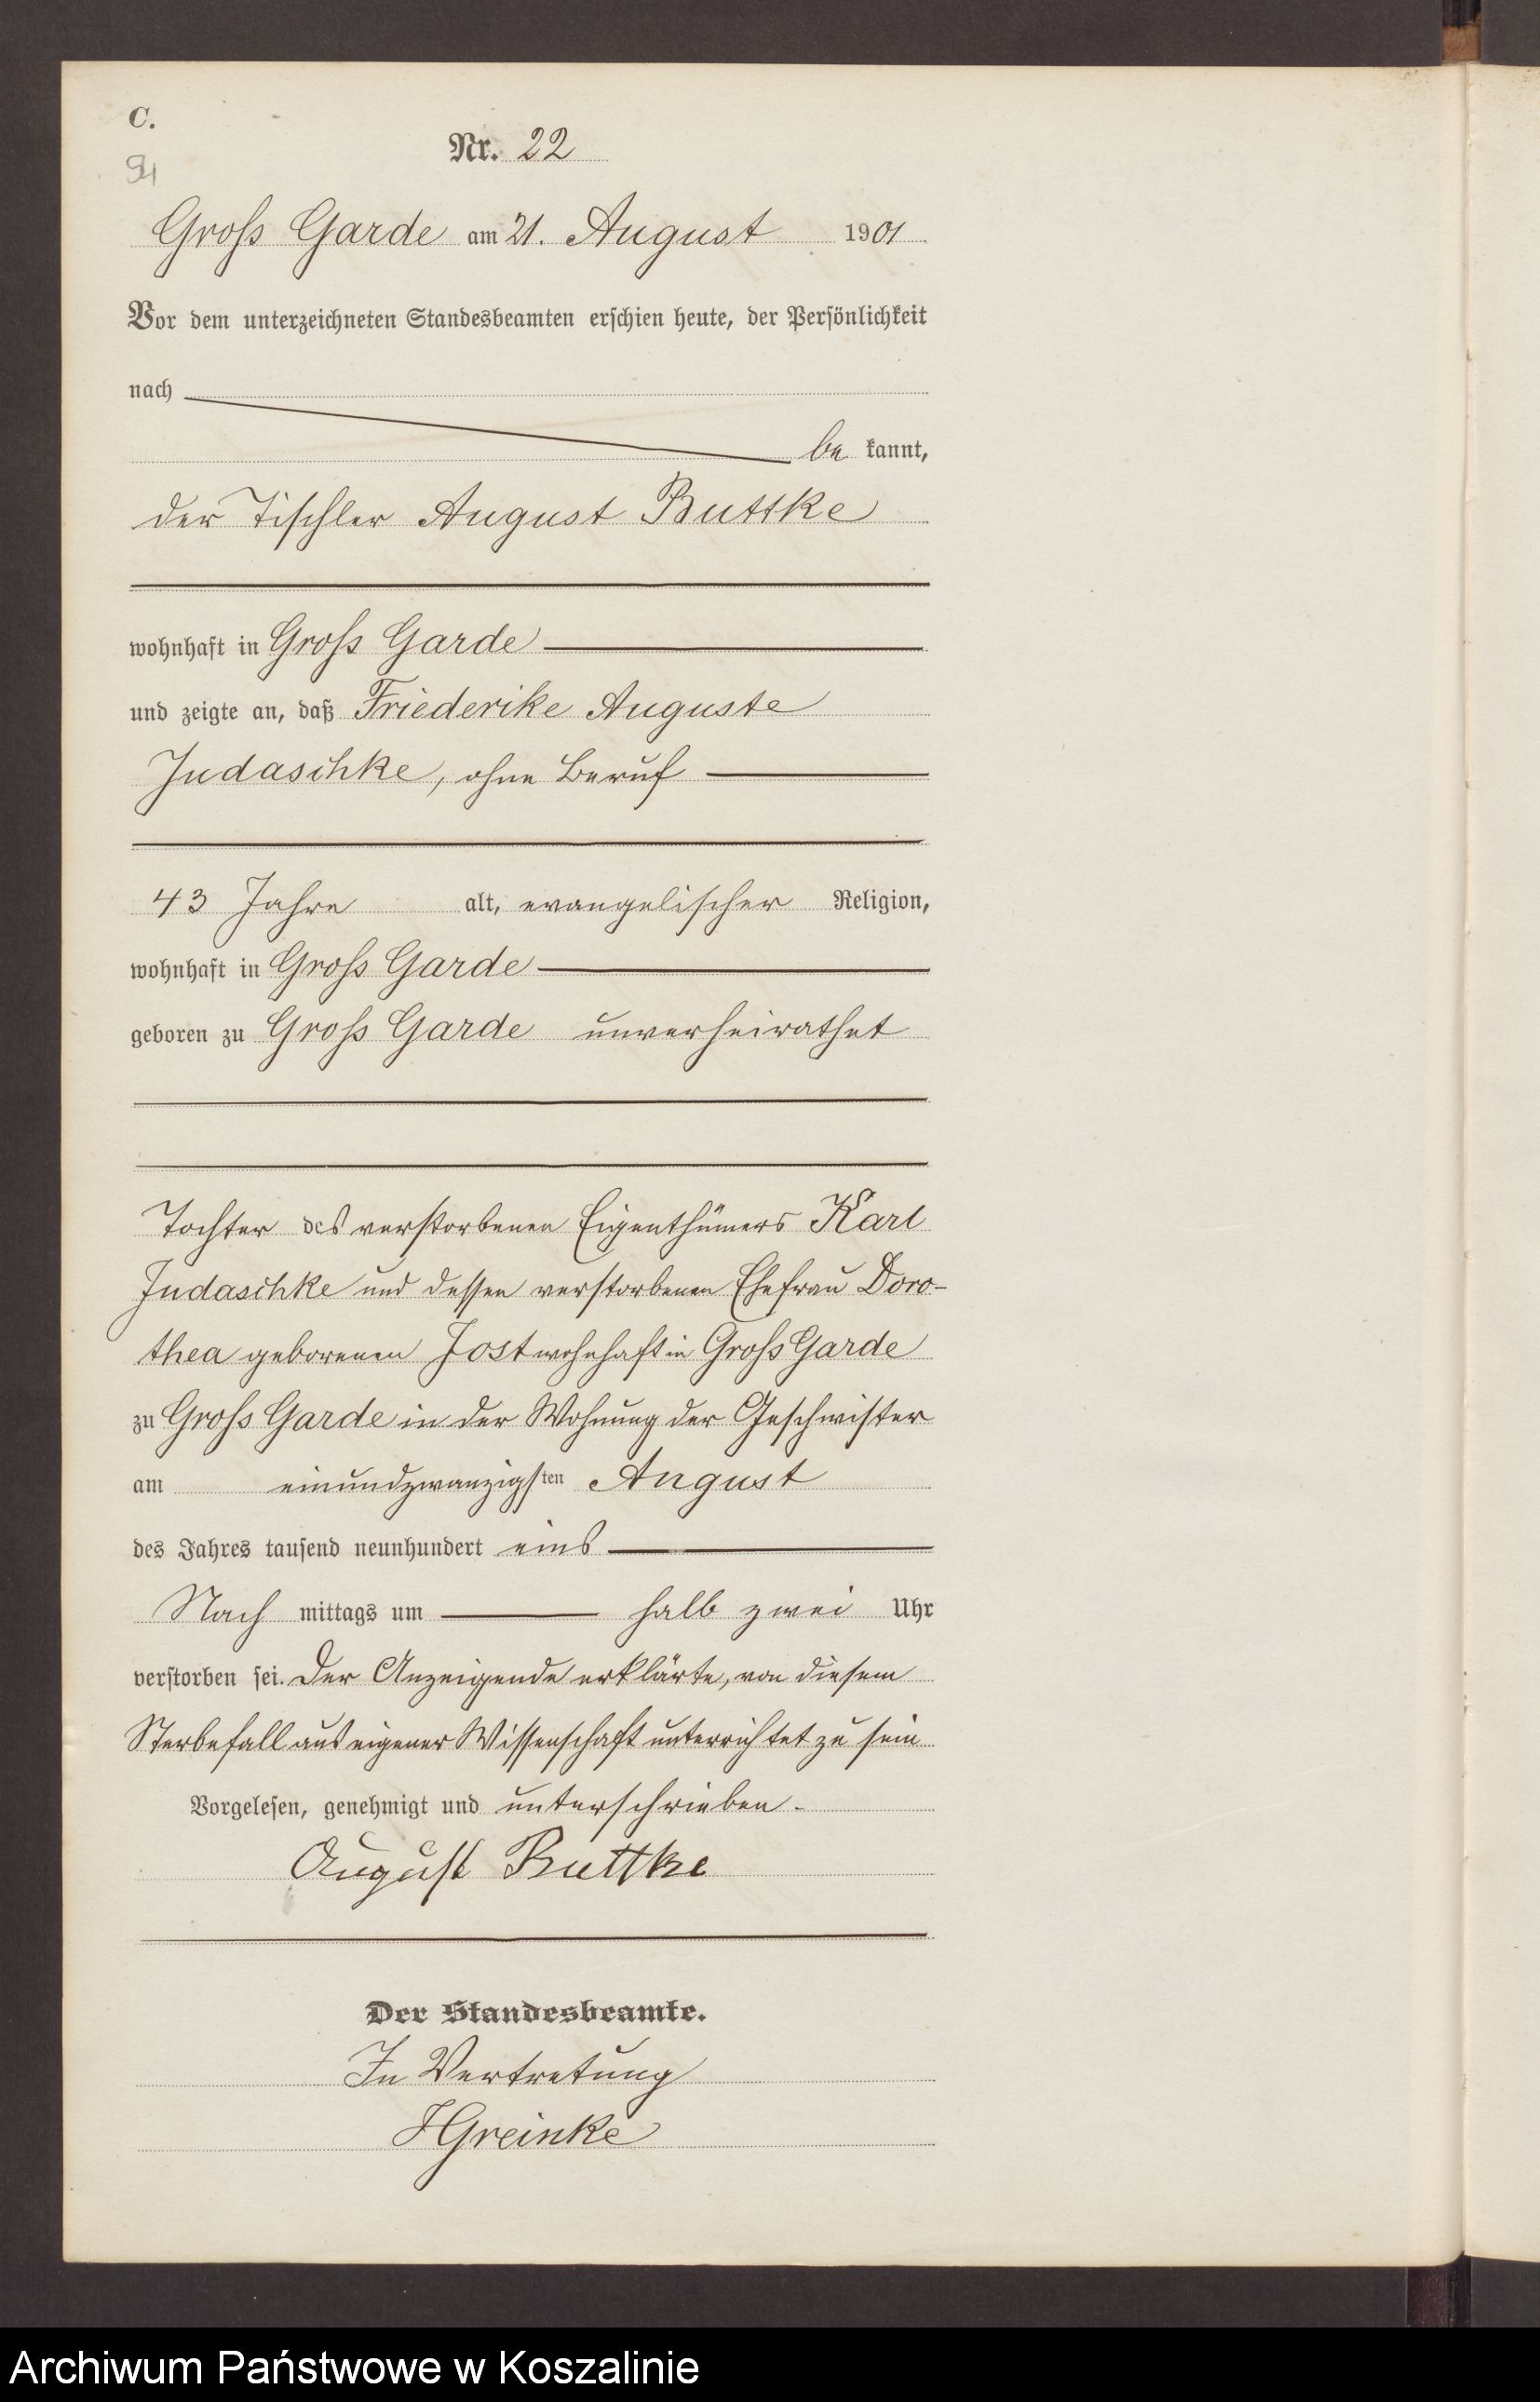 C.
Nr. 22
Groß Garde am 21. August 1901
Vor dem unterzeichneten Standesbeamten erschien heute, der Persönlichkeit
nach
be kannt,
der Tischler August Buttke
wohnhaft in Groß Garde
und zeigte an, daß Friederike Auguste
Judaschke, ohne Beruf
43 Jahre alt, evangelischer Religion,
wohnhaft in Groß Garde
geboren zu Groß Garde unverheirathet
Tochter des verstorbenen Eigenthümers Karl
Judaschke und dessen verstorbenen Ehefrau Doro-
thea geborenen Jost wohnhaft in Groß Garde
zu Groß Garde in der Wohnung der Geschwister
am einundzwanzigsten August
des Jahres tausend neunhundert eins
Nach mittags um halb zwei Uhr
verstorben sei. Der Anzeigende erklärte, von diesem
Sterbefall aus eigener Wissenschaft unterrichtet zu sein
Vorgelesen, genehmigt und unterschrieben.
August Buttke
Der Standesbeamte.
In Vertretung
HGreinke
Archiwum Państwowe w Koszalinie